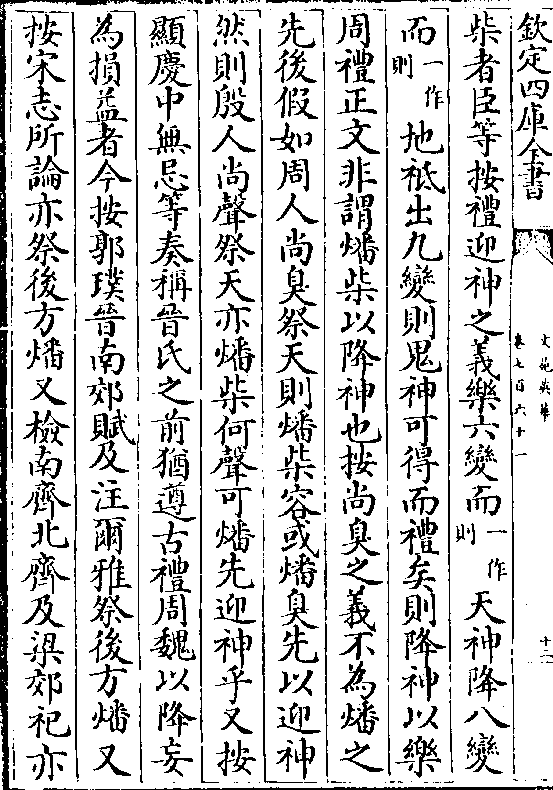 欽定四庫全書
文苑英華
卷七百六十一
十二
柴者臣等按禮迎神之義樂六變而一作則天神降八變
而一作則地祗出九變則鬼神可得而禮矣則降神以樂
周禮正文非謂燔柴以降神也按尚臭之義不為燔之
先後假如周人尚臭祭天則燔柴容或燔臭先以迎神
然則殷人尚聲祭天亦燔柴何聲可燔先迎神乎又按
顯慶中無忌等奏稱晉氏之前猶遵古禮周魏以降妄
為損益者今按郭璞晉南郊賦及注爾雅祭後方燔又
按宋志所論亦祭後方燔又檢南齊北齊及梁郊祀亦